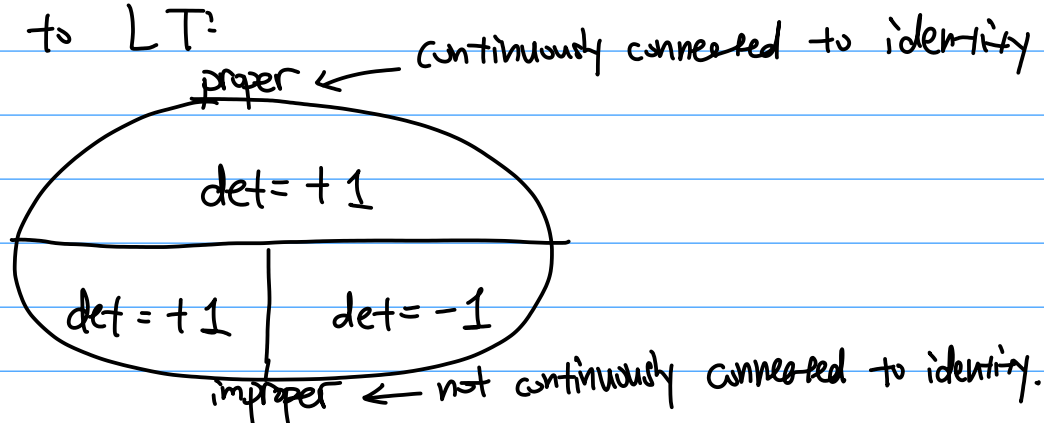 to LT:
continuously connected to identity
proper
det = +1
det = +1
det = -1
improper
not continuously connected to identity.